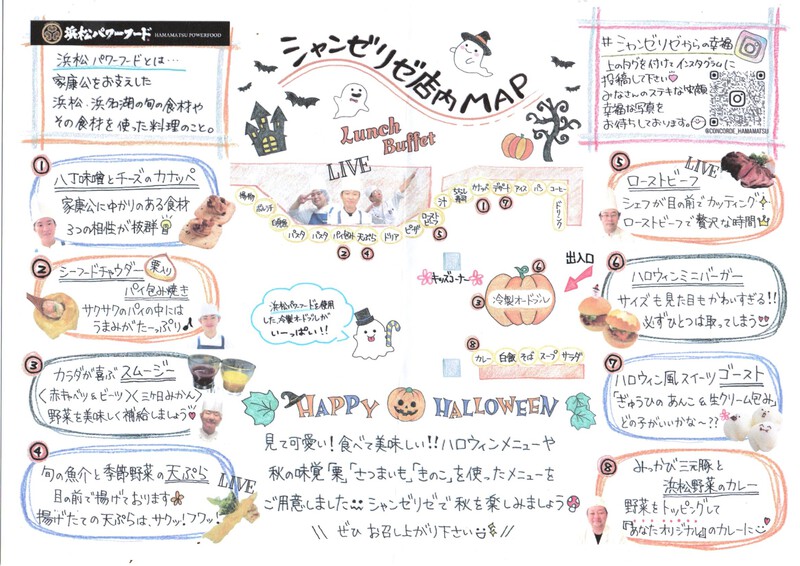 浜松パワーフード HAMAMATSU POWERFOOD
浜松パワーフードとは…
家康公をお支えした
浜松・浜名湖の旬の食材や
その食材を使った料理のこと。
シャンゼリゼ店内MAP
Lunch
Buffet
#シャンゼリゼからの幸福
上のタグを付けてインスタグラムに
投稿して下さい
みなさんのステキな笑顔
幸福な写真を
お待ちしております。
@CONCORDE_HAMAMATSU
①
八丁味噌とチーズのカナッペ
家康公にゆかりのある食材
3つの相性が抜群
②
シーフードチャウダー 栗入り
パイ包み焼き
サクサクのパイの中には
うまみがたーっぷり♪
③
カラダが喜ぶ スムージー
〈赤キャベツ&ビーツ〉〈三ケ日みかん〉
野菜を美味しく補給しましょう
④
旬の魚介と季節野菜の天ぷら
目の前で揚げております
LIVE
揚げたての天ぷらは、サクッ!フワッ!
LIVE
パスタ
パスタ
パイ包み
天ぷら
ドリア
ピザ
②
④
⑤
汁
カナッペ
デザート
アイス
パン
コーヒー
ドリンク
①
⑦
キッズコーナー
出入口
⑥
③
冷製オードブル
浜松パワーフードを使用
した、冷製オードブルが
いーっぱい!!
⑧
カレー
白飯
そば
スープ
サラダ
HAPPY HALLOWEEN
見て可愛い!食べて美味しい!!ハロウィンメニューや
秋の味覚「栗」「さつまいも」「きのこ」を使ったメニューを
ご用意しました シャンゼリゼで秋を楽しみましょう
\\ ぜひ お召し上がり下さい //
⑤
LIVE
ローストビーフ
シェフが目の前でカッティング
ローストビーフで贅沢な時間
⑥
ハロウィンミニバーガー
サイズも見た目もかわいすぎる!!
必ずひとつは取ってしまう
⑦
ハロウィン風スイーツ ゴースト
「ぎゅうひのあんこ&生クリーム包み」
どの子がいいかな〜??
⑧
みっかび三元豚と
浜松野菜のカレー
野菜をトッピングして
『あなたオリジナル』のカレーに